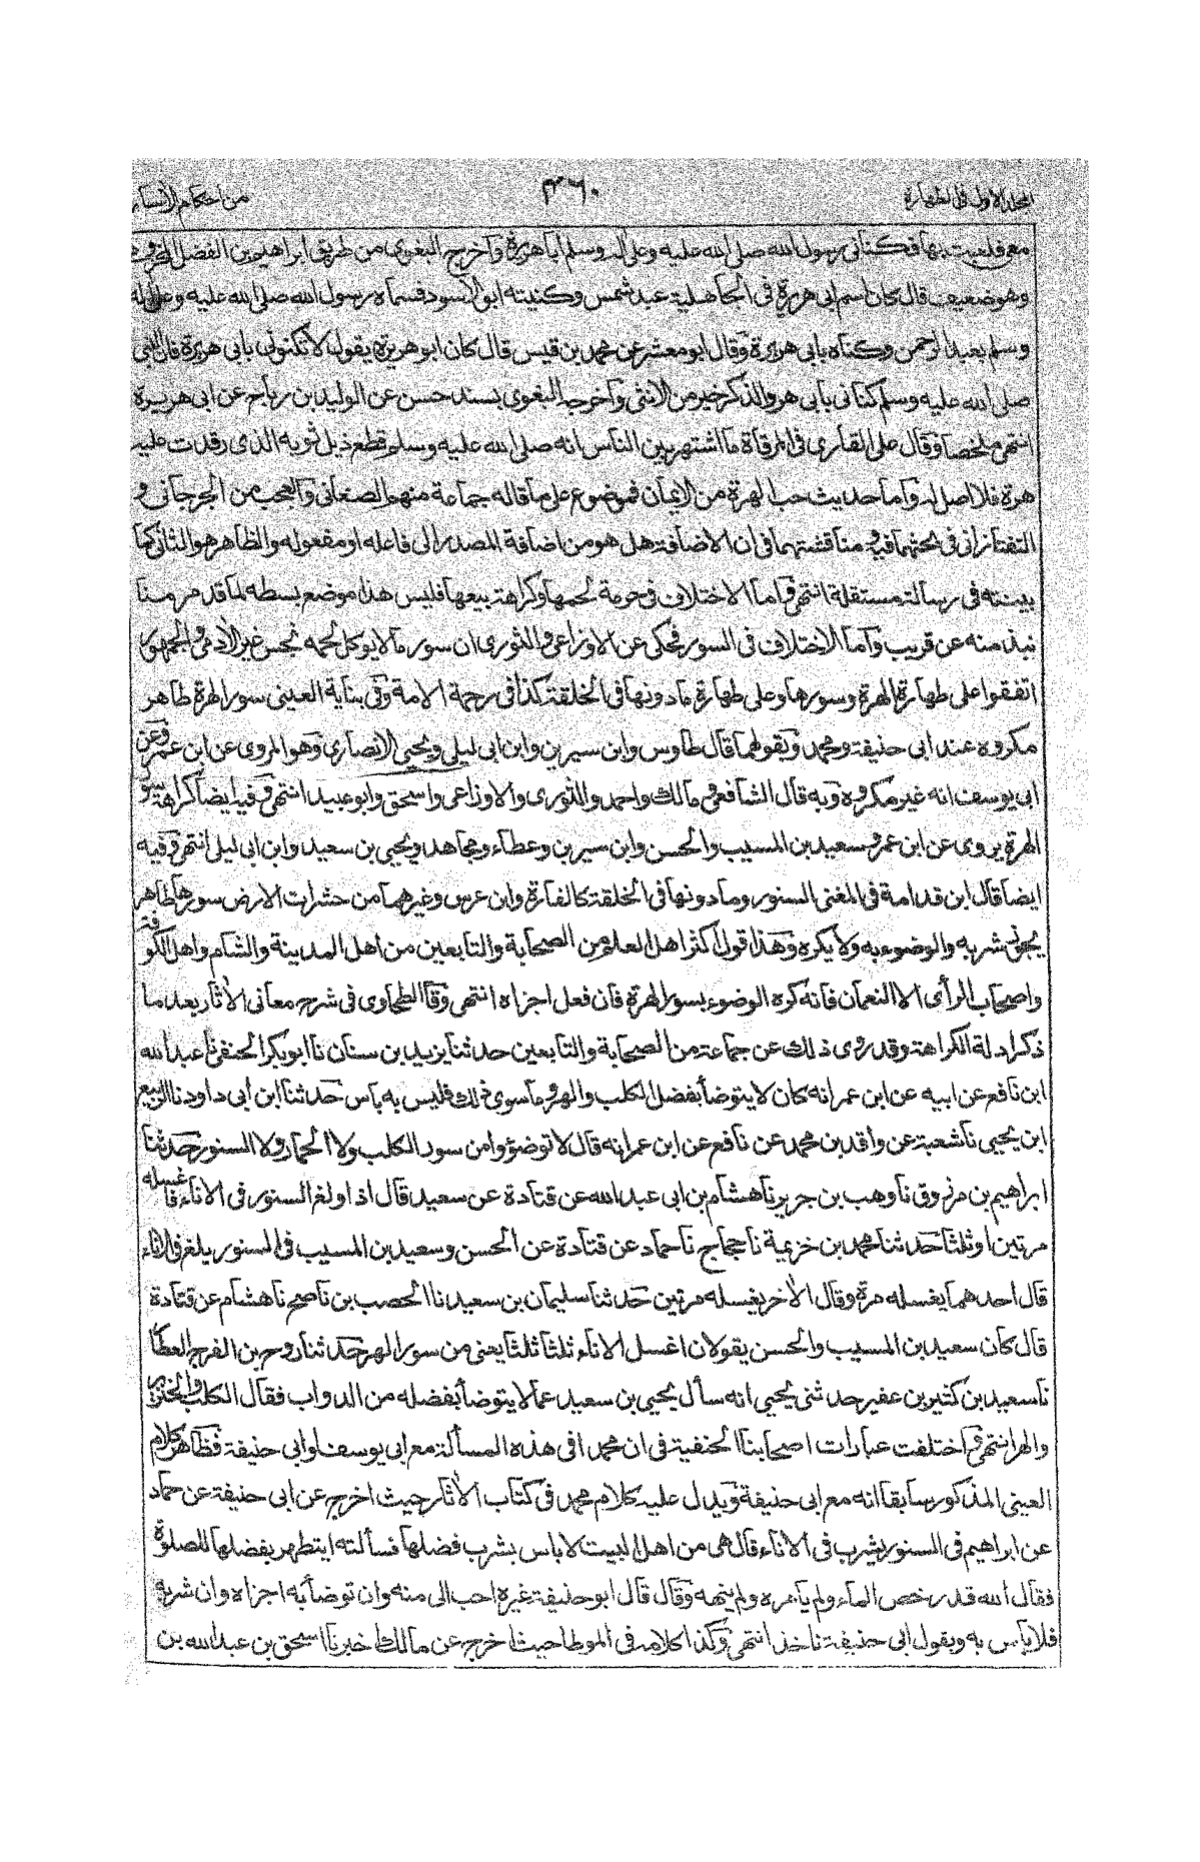 المجلد الاول فى الطهارة
٤٦٠
من احكام الأنسان
معى فلعبت بها فكنانى رسول الله صلى الله عليه وعلى اله وسلم أبا هريرة وأخرج البغوى من طريق ابراهيم بن الفضل المخزومى
وهو ضعيف قال كان اسم ابى هريرة فى الجاهلية عبد شمس وكنيته ابو الأسود فسماه رسول الله صلى الله عليه وعلى اله
وسلم بعبد الرحمن وكناه بابى هريرة وقال ابو معشر عن محمد بن قيس قال كان ابو هريرة يقول لا تكنونى بابى هريرة فان النبى
صلى الله عليه وسلم كنانى بابى هر والذكر خير من الانثى وأخرجه البغوى بسند حسن عن الوليد بن رباح عن ابى هريرة
انتهى ملخصا وقال على القارى فى المرقاة ما اشتهر بين الناس انه صلى الله عليه وسلم قطع ذيل ثوبه الذى رقدت عليه
هرة فلا اصل له وأما حديث حب الهرة من الإيمان فموضوع على ما قاله جماعة منهم الصغانى والعجب من الجرجانى و
التفتازانى فى بحثهما فيه ومناقشتهما فى ان الاضافة هل هو من اضافة المصدر الى فاعله او مفعوله والظاهر هو الثانى كما
بينته فى رسالة مستقلة انتهى واما الاختلاف فى حرمة لحمها وكراهة بيعها فليس هذا موضع بسطه لما قد مر منا
نبذ منه عن قريب وأما الاختلاف فى السور فحكى عن الاوزاعى والثورى ان سور ما لا يوكل لحمه نجس غير الأدمى والجمهور
اتفقوا على طهارة الهرة وسورها وعلى طهارة ما دونها فى الخلقة كذا فى رحمة الامة وفى بناية العينى سور الهرة طاهر
مكروه عند ابى حنيفة ومحمد وبقولهما قال طاوس وابن سيرين وابن ابى ليلى ويحيى الانصارى وهو المروى عن ابن عمر وعن
ابى يوسف انه غير مكروه وبه قال الشافعى ومالك واحمد والثورى والاوزاعى واسحق وابو عبيد انتهى وفيه ايضا كراهة سور
الهرة يروى عن ابن عمر وسعيد بن المسيب والحسن وابن سيرين وعطاء ومجاهد ويحيى بن سعيد وابن ابى ليلى انتهى وفيه
ايضا قال ابن قدامة فى المغنى السنور وما دونها فى الخلقة كالفارة وابن عرس وغيرهما من حشرات الارض سورها طاهر
يجوز شربه والوضوء به ولا يكره وهذا قول اكثر اهل العلم من الصحابة والتابعين من اهل المدينة والشام واهل الكوفة
واصحاب الرأى الا النعمان فانه كره الوضوء بسور الهرة فان فعل اجزاه انتهى وقال الطحاوى فى شرح معانى الأثار بعد ما
ذكر ادلة الكراهة وقد روى ذلك عن جماعة من الصحابة والتابعين حدثنا يزيد بن سنان نا ابو بكر الحنفى نا عبد الله
ابن نافع عن ابيه عن ابن عمر انه كان لا يتوضأ بفضل الكلب والهر وما سوى ذلك فليس به بأس حدثنا ابن أبى داود نا الربيع
ابن يحيى نا شعبة عن واقد بن محمد عن نافع عن ابن عمر انه قال لا توضؤوا من سور الكلب ولا الحمار ولا السنور حدثنا
ابراهيم بن مرزوق نا وهب بن جرير نا هشام بن ابى عبد الله عن قتادة عن سعيد قال اذا ولغ السنور فى الاناء فاغسله
مرتين او ثلثا حدثنا محمد بن خزيمة نا حجاج نا حماد عن قتادة عن الحسن وسعيد بن المسيب فى السنور يلغ فى الاناء
قال احدهما يغسله مرة وقال الأخر يغسله مرتين حدثنا سليمان بن سعيد نا الخصب بن ناصح نا هشام عن قتادة
قال كان سعيد بن المسيب والحسن يقولان اغسل الاناء ثلثا ثلثا يعنى من سور الهر حدثنا روح بن الفرج العطار
نا سعيد بن كثير بن عفير حدثنى يحيى انه سأل يحيى بن سعيد عما لا يتوضأ بفضله من الدواب فقال الكلب والخنزير
والهر انتهى واختلفت عبارات اصحابنا الحنفية فى ان محمدا فى هذه المسألة مع ابى يوسف او ابى حنيفة فظاهر كلام
العينى المذكور سابقا انه مع ابى حنيفة ويدل عليه كلام محمد فى كتاب الأثار حيث اخرج عن ابى حنيفة عن حماد
عن ابراهيم فى السنور يشرب فى الاناء قال هى من اهل البيت لا باس بشرب فضلها فسألته ايتطهر بفضلها للصلوة
فقال الله قد رخص الماء ولم يأمره ولم ينهه وقال قال ابو حنيفة غيره احب الى منه وان توضأ به اجزاه وان شربه
فلا بأس به وبقول ابى حنيفة ناخذ انتهى وكذا كلامه فى الموطا حيث اخرج عن مالك اخبرنا اسحق بن عبد الله بن